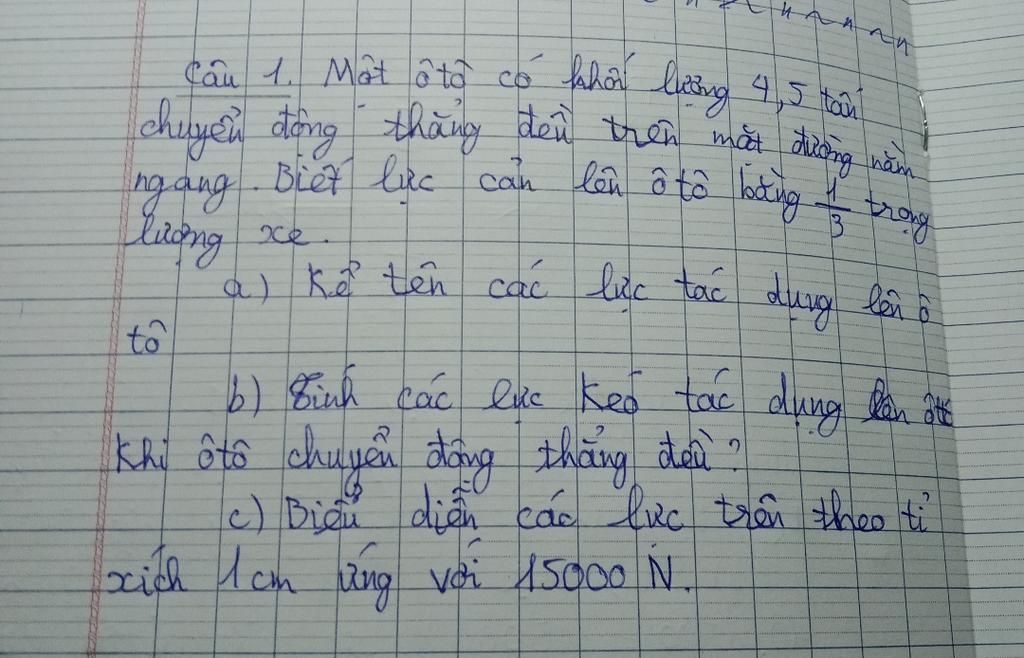 Câu 1. Một ôtô có khối lượng 4,5 tấn
chuyển động thẳng đều trên mặt đường nằm
ngang. Biết lực cản lên ôtô bằng 1/3 trọng
lượng xe.
a) Kể tên các lực tác dụng lên ô
tô
b) Tính các lực kéo tác dụng lên ôtô
khi ôtô chuyển động thẳng đều?
c) Biểu diễn các lực trên theo tỉ
xích 1cm ứng với 15000 N.